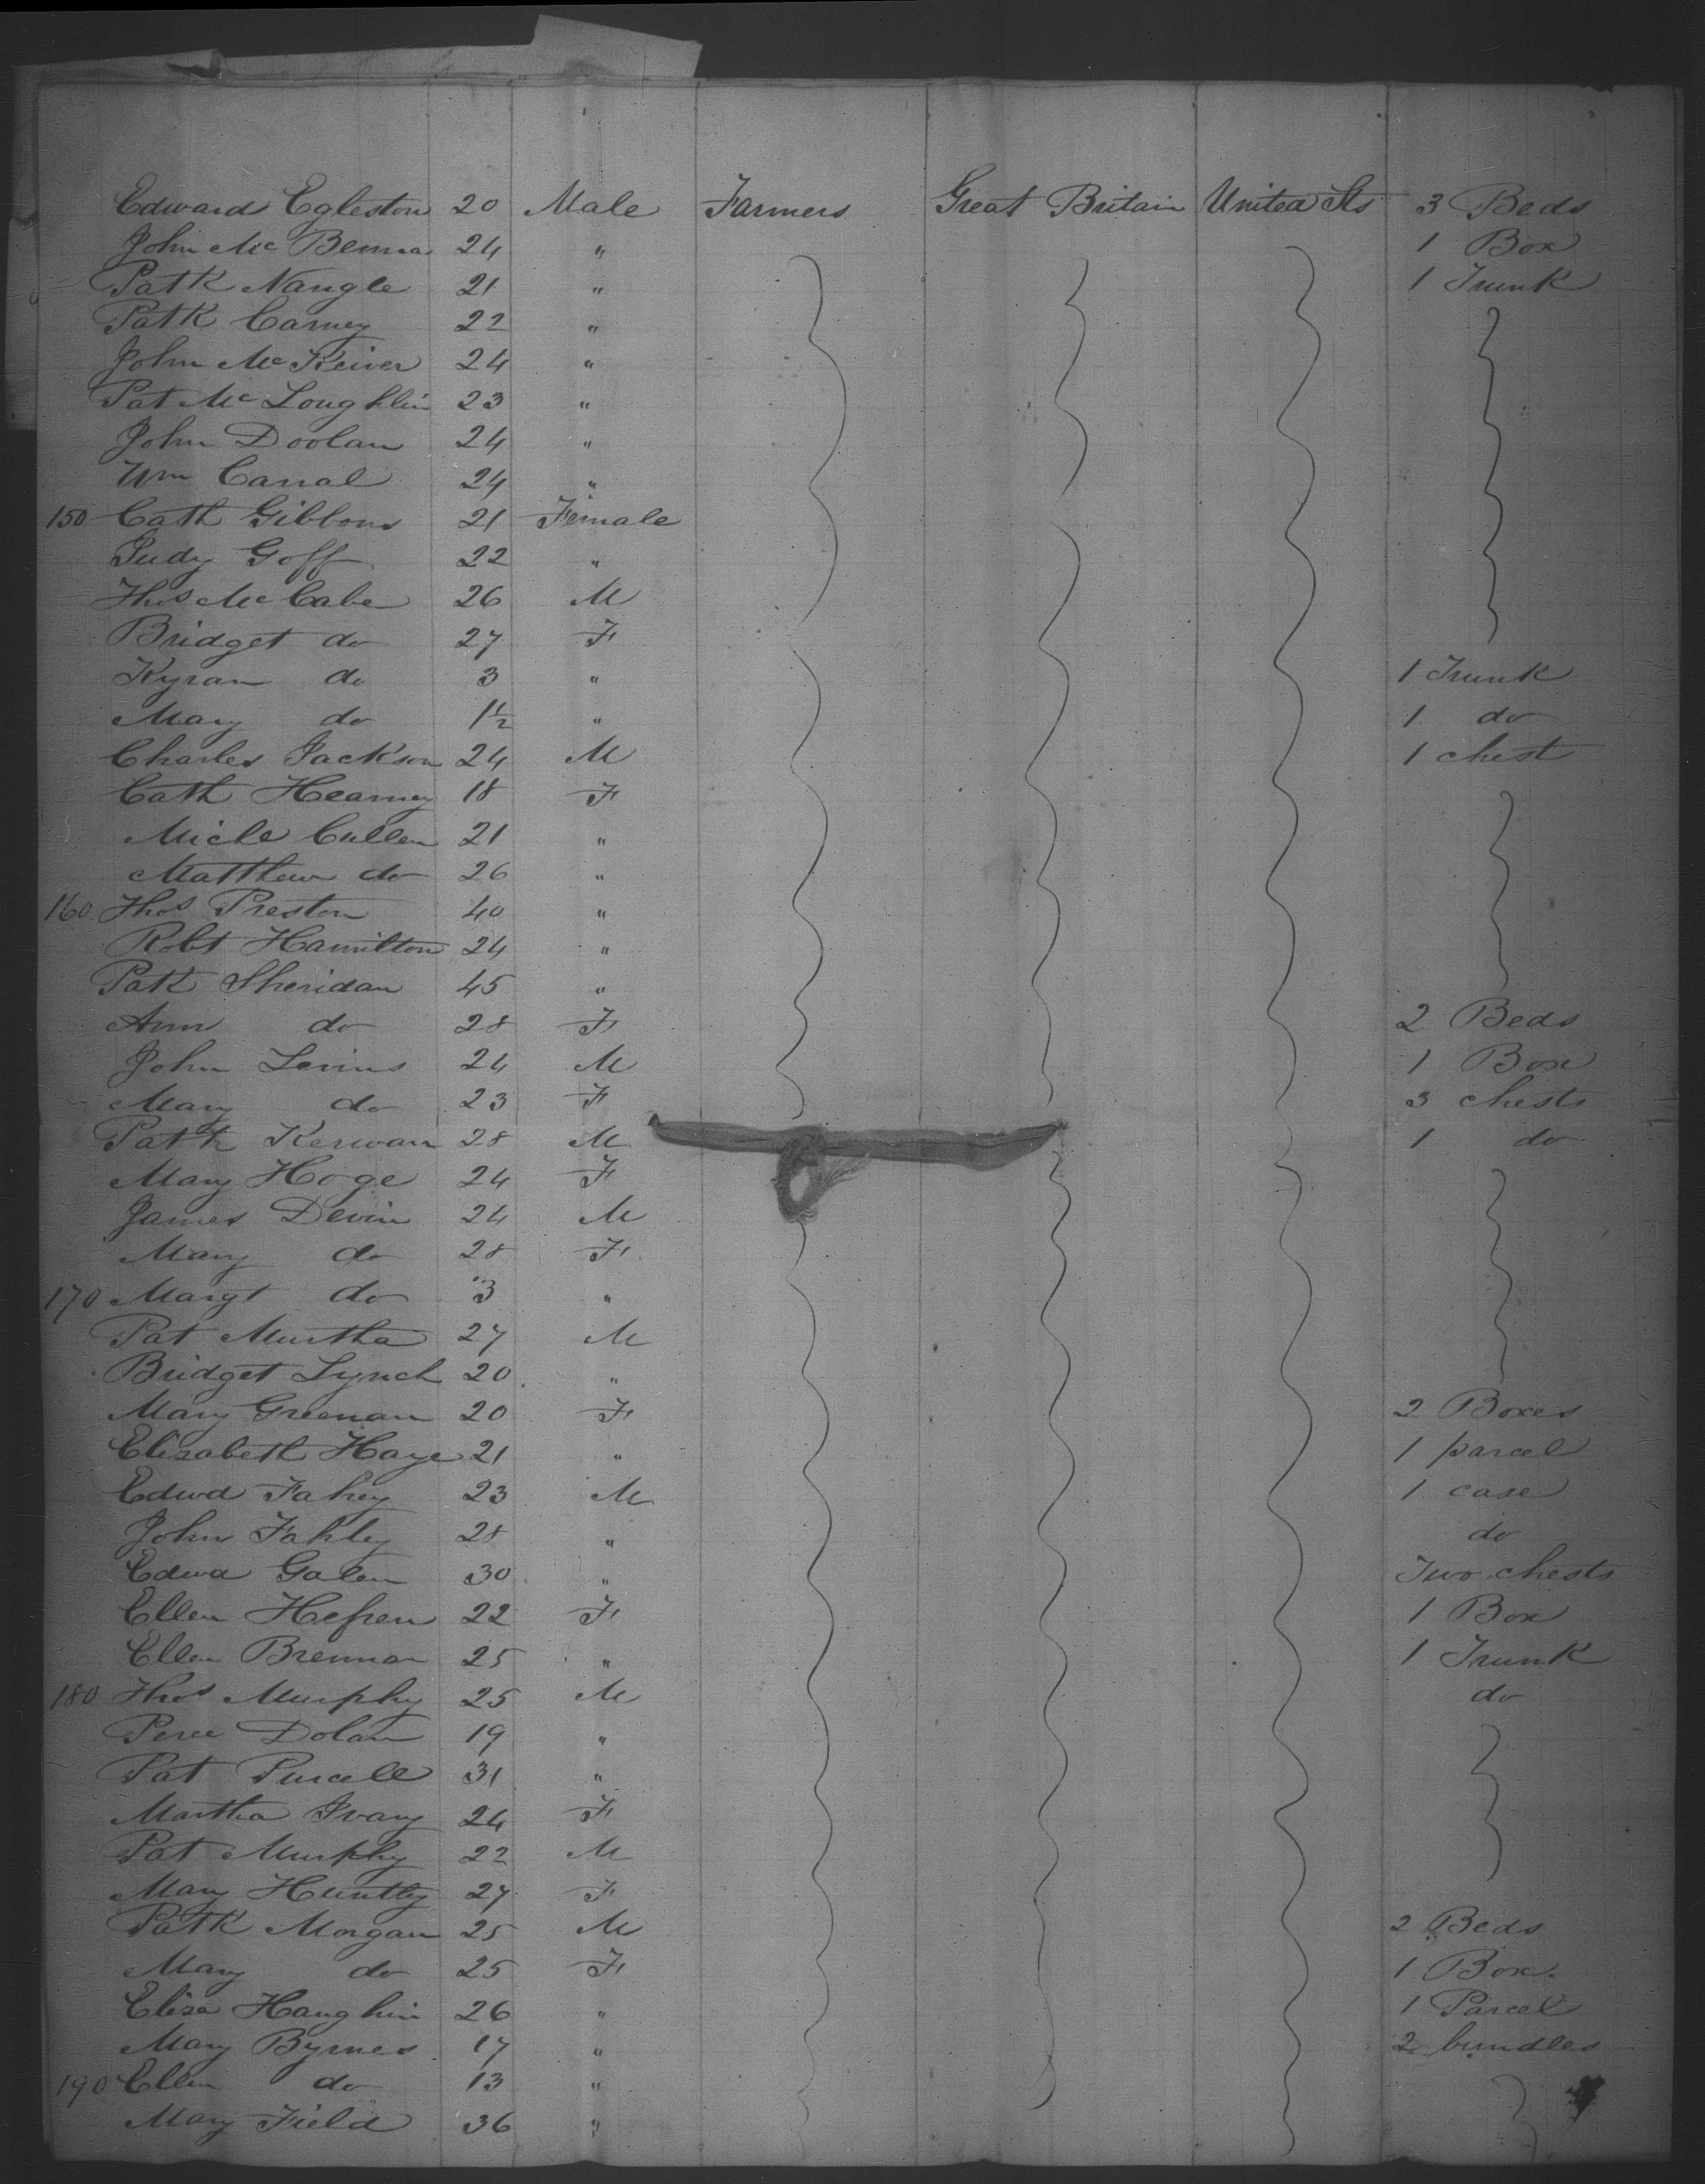 Edward Egleston 20 Male Farmers Great Britain United Sts 3 Beds
John Mc Benna 24 " 1 Box
Patk Nangle 21 " 1 Trunk
Patk Carney 22 "
John Mc Keiver 24 "
Pat Mc Loughlin 23 "
John Doolan 24 "
Wm Carral 24 "
150 Cath Gibbons 21 Female
Judy Goff 22 "
Thos Mc Cabe 26 M
Bridget do 27 F
Kyran do 3 " 1 Trunk
Mary do 1½ " 1 do
Charles Jackson 24 M 1 chest
Cath Hearney 18 F
Micle Cullen 21 "
Matthew do 26 "
160 Thos Preston 40 "
Robt Hamilton 24 "
Patk Sheridan 45 "
Ann do 28 F 2 Beds
John Levins 24 M 1 Box
Mary do 23 F 3 chests
Patk Kerwan 28 M 1 do
Mary Hoge 24 F
James Devin 24 M
Mary do 28 F
170 Margt do 3 "
Pat Murtha 27 M
Bridget Lynch 20 "
Mary Greenan 20 F 2 Boxes
Elizabeth Haye 21 " 1 parcel
Edwd Fahey 23 M 1 case
John Fahley 28 " do
Edwd Galen 30 " Two chests
Ellen Hefren 22 F 1 Box
Ellen Brennan 25 " 1 Trunk
180 Thos Murphy 25 M do
Perce Dolan 19 "
Pat Purcell 31 "
Martha Ivary 24 F
Pat Murphy 22 M
Mary Huntly 27 F
Patk Morgan 25 M 2 Beds
Mary do 25 F 1 Box
Eliza Haughin 26 " 1 Parcel
Mary Byrnes 17 " 2 bundles
190 Ellen do 13 "
Mary Field 36 "